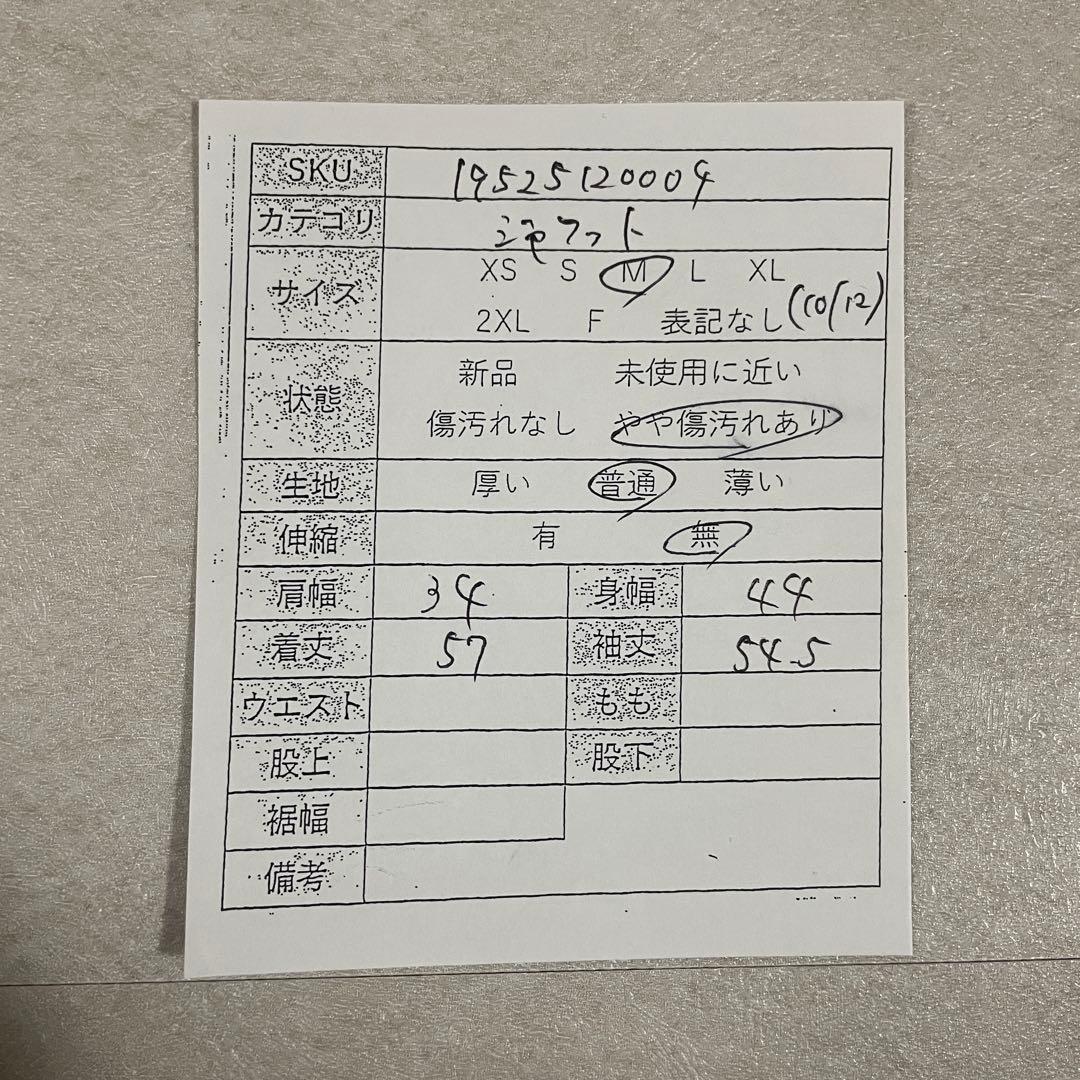 SKU 19525120004
カテゴリ
サイズ XS S M L XL
2XL F 表記なし (10/12)
状態 新品 未使用に近い
傷汚れなし やや傷汚れあり
生地 厚い 普通 薄い
伸縮 有 無
肩幅 34 身幅 44
着丈 57 袖丈 54.5
ウエスト もも
股上 股下
裾幅
備考